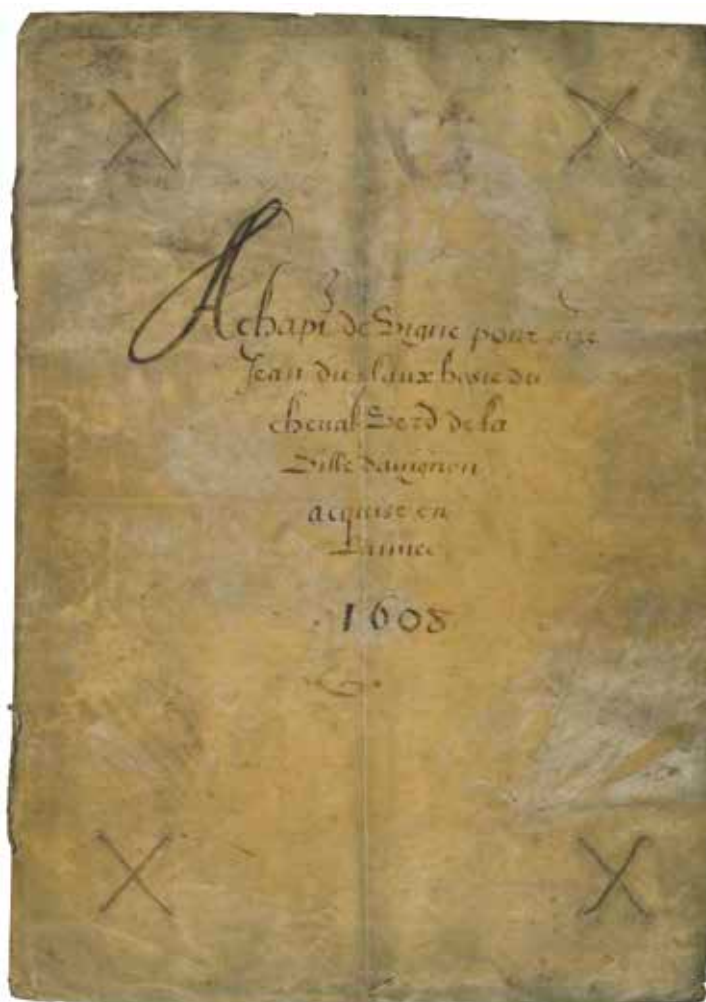 Achapt de Vigne pour sire
Jean du claux hoste du
cheval Verd de la
Ville davignon
acquise en
Lannee
1608